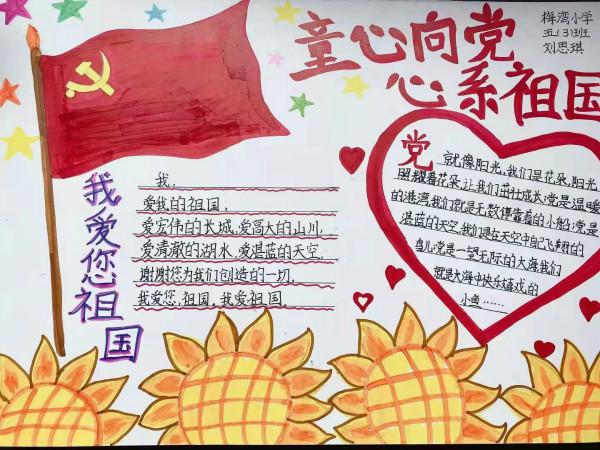 童心向党
心系祖国
梅湾小学
五(3)班
刘思琪
我爱您祖国
我,
爱我的祖国,
爱宏伟的长城,爱高大的山川,
爱清澈的湖水,爱湛蓝的天空,
谢谢您为我们创造的一切,
我爱您,祖国,我爱祖国
党就像阳光,我们是花朵,阳光
照耀着花朵,让我们茁壮成长;党是温暖
的港湾,我们就是无数停靠着的小船;党是
湛蓝的天空,我们是在天空中自己飞翔的
鸟儿;党是一望无际的大海,我们
就是大海中快乐嬉戏的
小鱼……